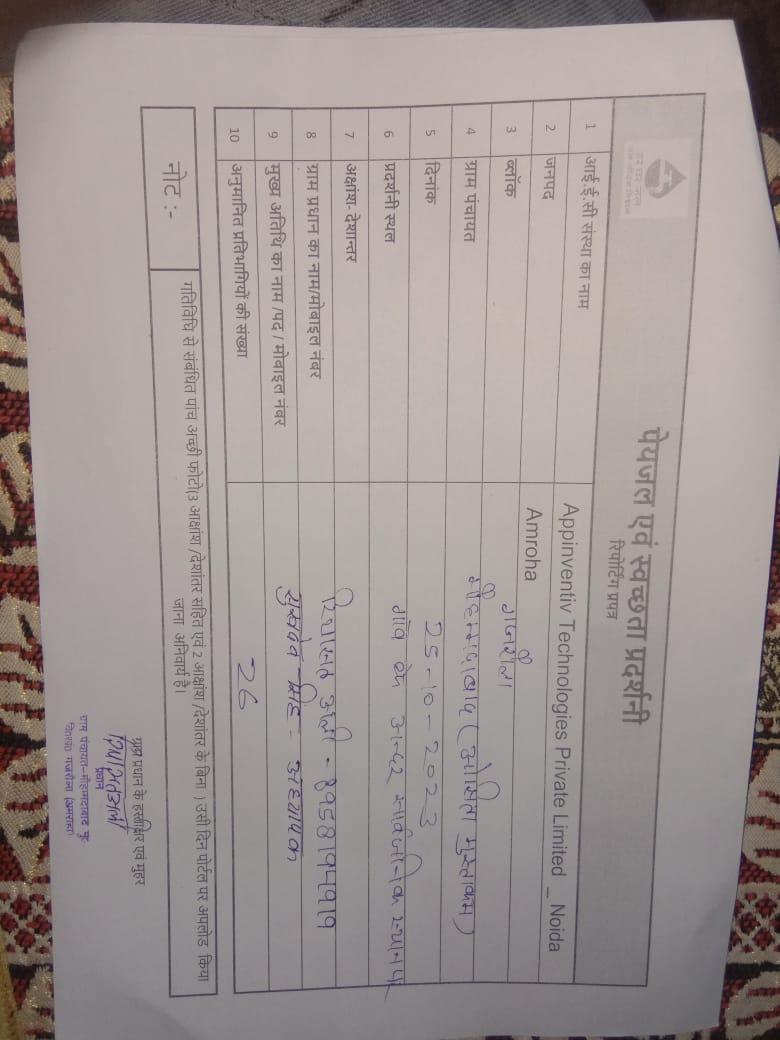 पेयजल एवं स्वच्छता प्रदर्शनी
रिपोर्टिंग प्रपत्र
1 आई.ई.सी संस्था का नाम Appinventiv Technologies Private Limited _ Noida
2 जनपद Amroha
3 ब्लॉक गजरौला
4 ग्राम पंचायत
5 दिनांक 25-10-2023
6 प्रदर्शनी स्थल गाँव के अन्दर सार्वजनिक स्थान पर
7 अक्षांश- देशान्तर
8 ग्राम प्रधान का नाम/मोबाइल नंबर रियासत अली -
9 मुख्य अतिथि का नाम /पद / मोबाइल नंबर सुखदेव सिंह - अध्यापक
10 अनुमानित प्रतिभागियों की संख्या 26
नोट :- गतिविधि से संबंधित पांच अच्छी फोटो(3 आक्षांश /देशांतर सहित एवं 2 आक्षांश /देशांतर के बिना ) उसी दिन पोर्टल पर अपलोड किया
जाना अनिवार्य है।
ग्राम प्रधान के हस्ताक्षर एवं मुहर
रियासत अली
प्रधान
ग्राम पंचायत-मौहम्मदाबाद मु०
वि०ख० गजरौला (अमरोहा)